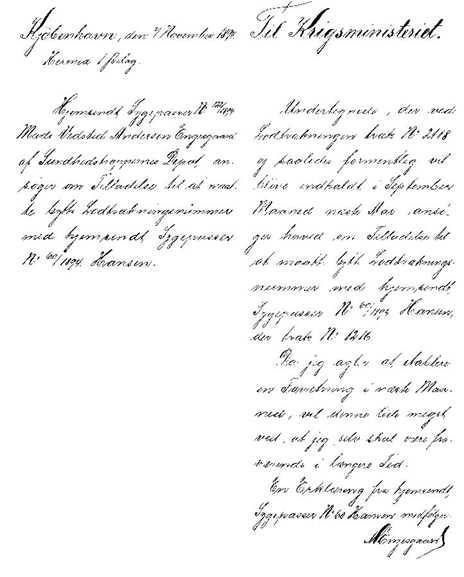 Kjøbenhavn, den 7/November 1894.
Hermed 1 Forlæg.
Hjemsendt Sygepasser № 122/1894
Mads Vedsted Andersen Engesgaard
af Sundhedstroppernes Depot, an-
søger om Tilladelse til at maat-
te bytte Lodtrækningsnummer
med hjemsendt Sygepasser
№ 60/1894 Hansen.
Til Krigsministeriet.
Undertegnede, der ved
Lodtrækningen trak № 2118
og saaledes formentlig vil
blive indkaldt i September
Maaned næste Aar, ansø-
ger herved om Tilladelse til
at maatte bytte Lodtræknings-
nummer med hjemsendt
Sygepasser № 60/1894 Hansen,
der trak № 1216
Da jeg agter at etablere
en Forretning i næste Maa-
ned, vil denne lide meget
ved, at jeg selv skal være fra-
værende i længere Tid.
En Erklæring fra hjemsendt
Sygepasser № 60 Hansen medfølger.